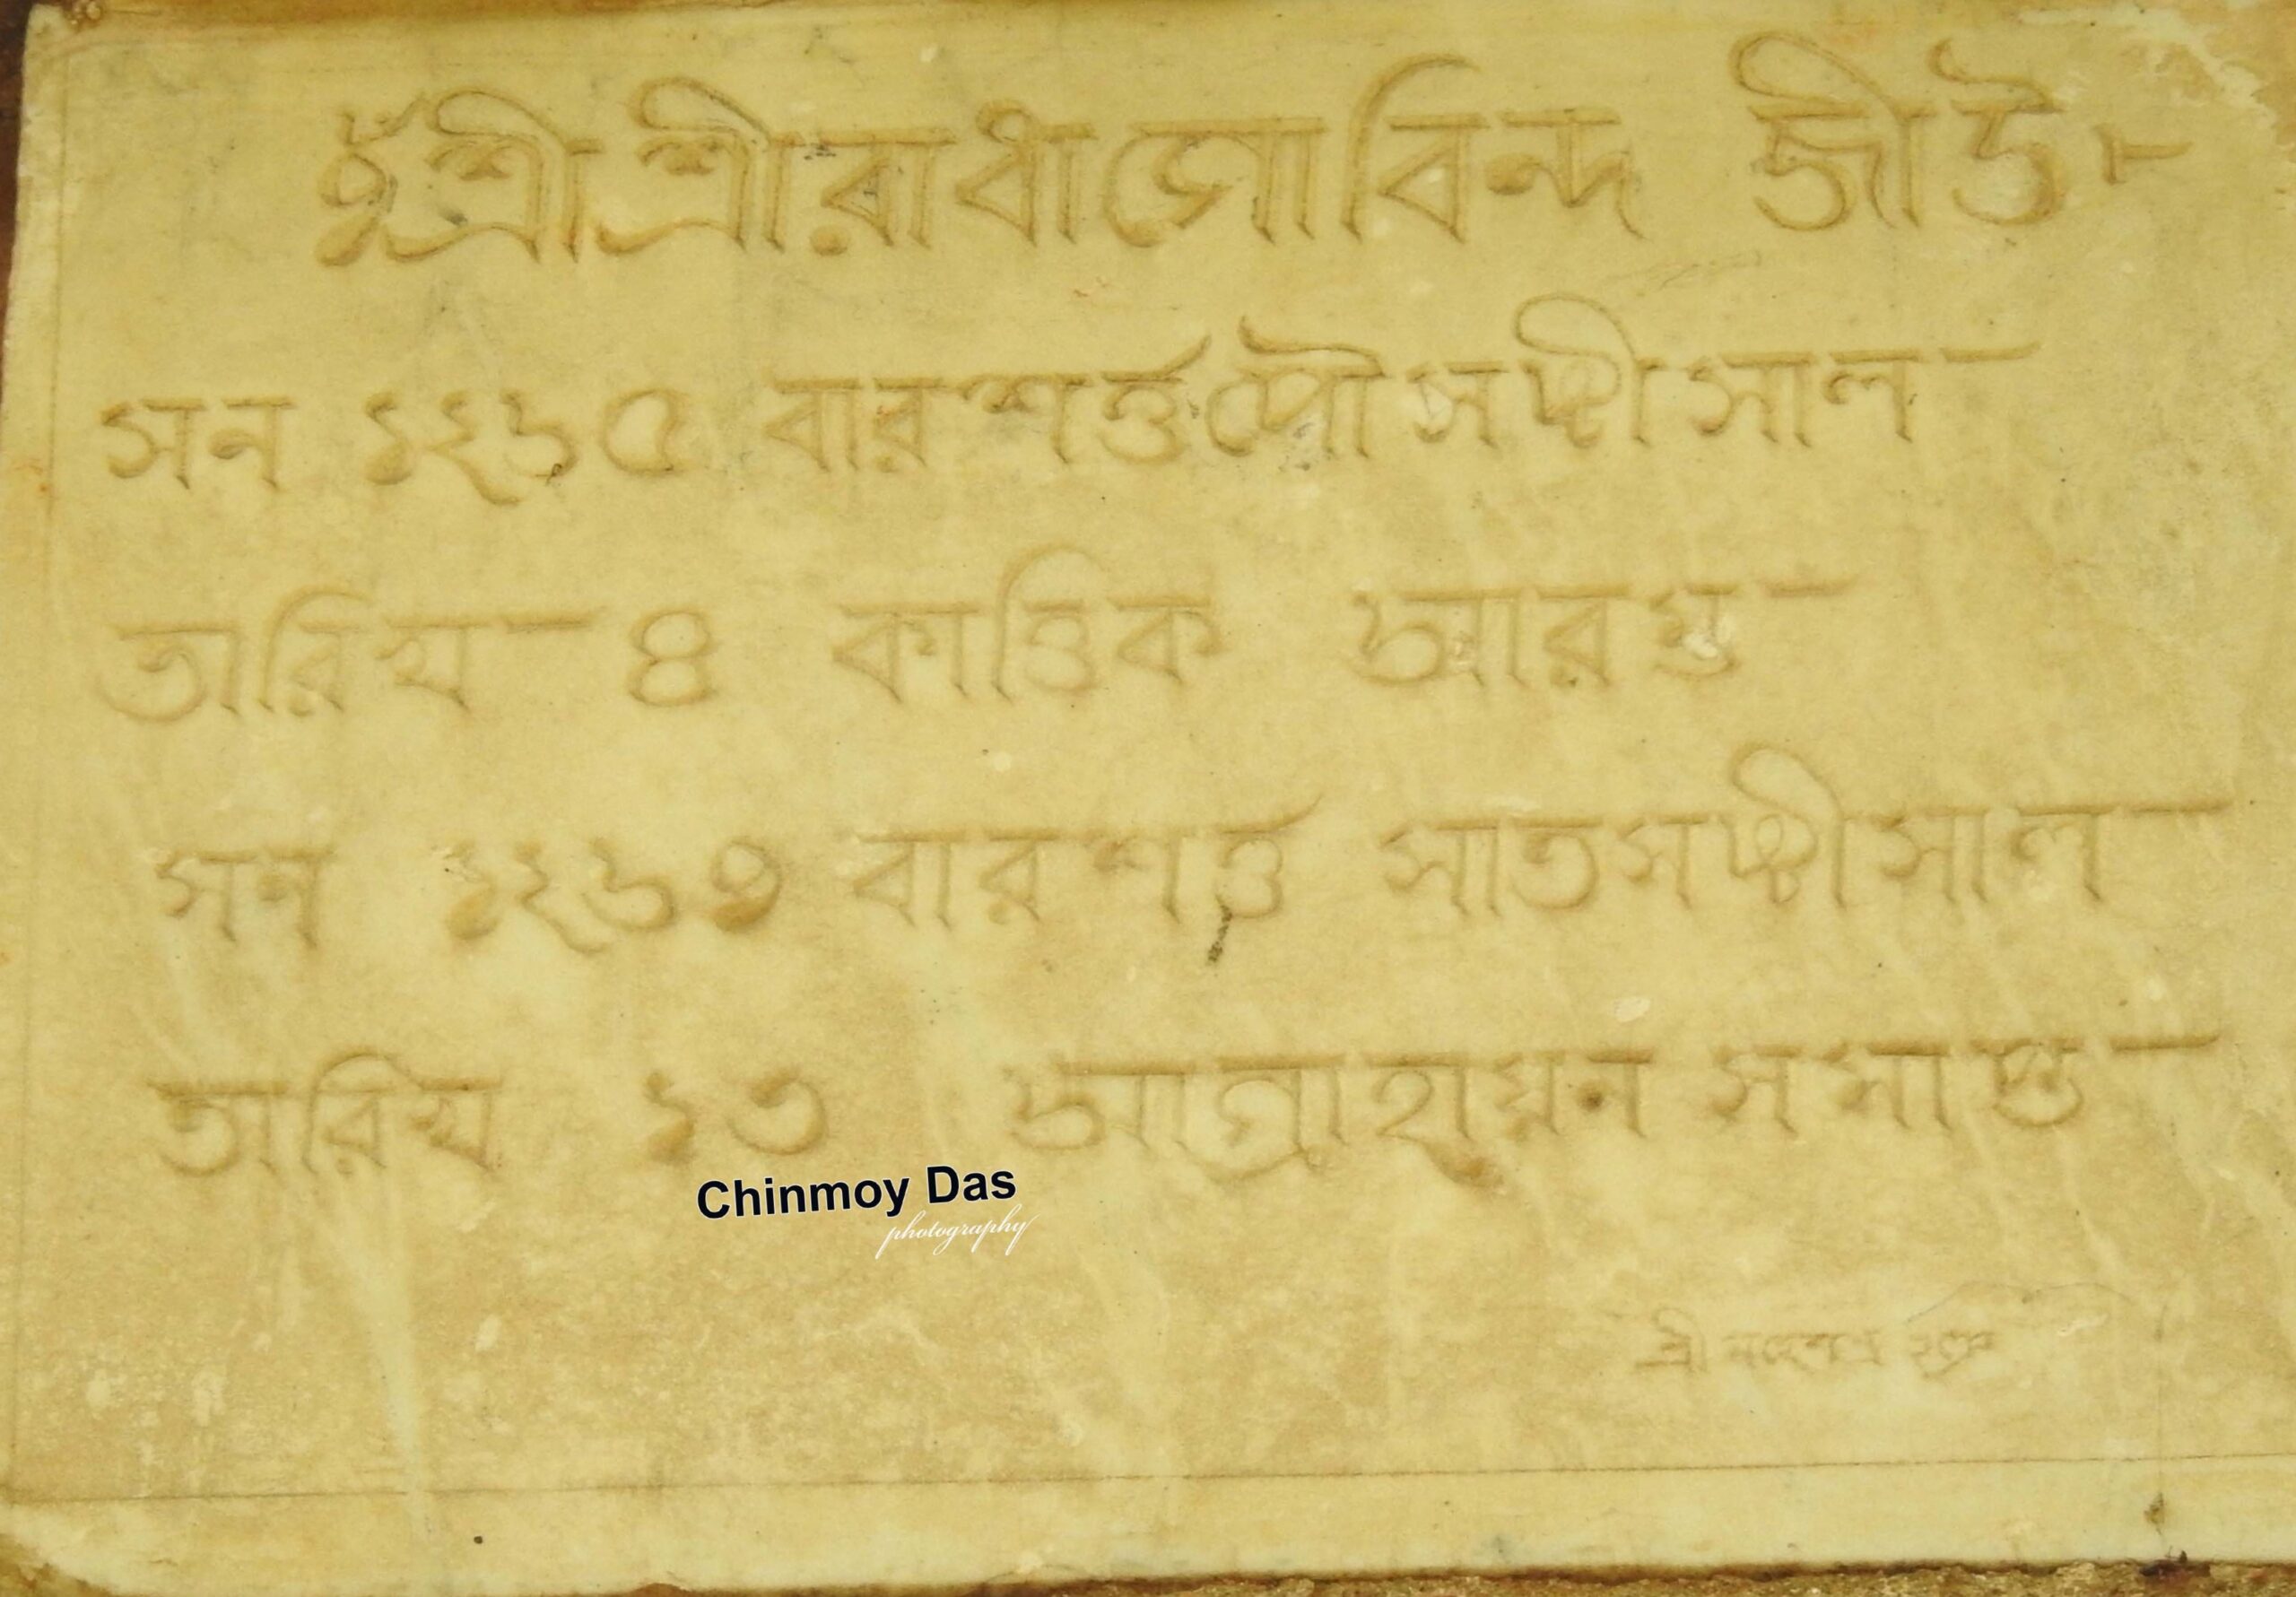 ঁ৭শ্রীশ্রীরাধাগোবিন্দ জীউ
সন ১২৬৫ বারশর্ত্ত সাল
তারিখ ৪ কাত্তিক আরম্ভ
সন ১২৬৭ বারশর্ত্ত সাতসষ্টীসাল
তারিখ ১৩ আগ্রাহায়ন সমাপ্ত
Chinmoy Das
photography
শ্রী